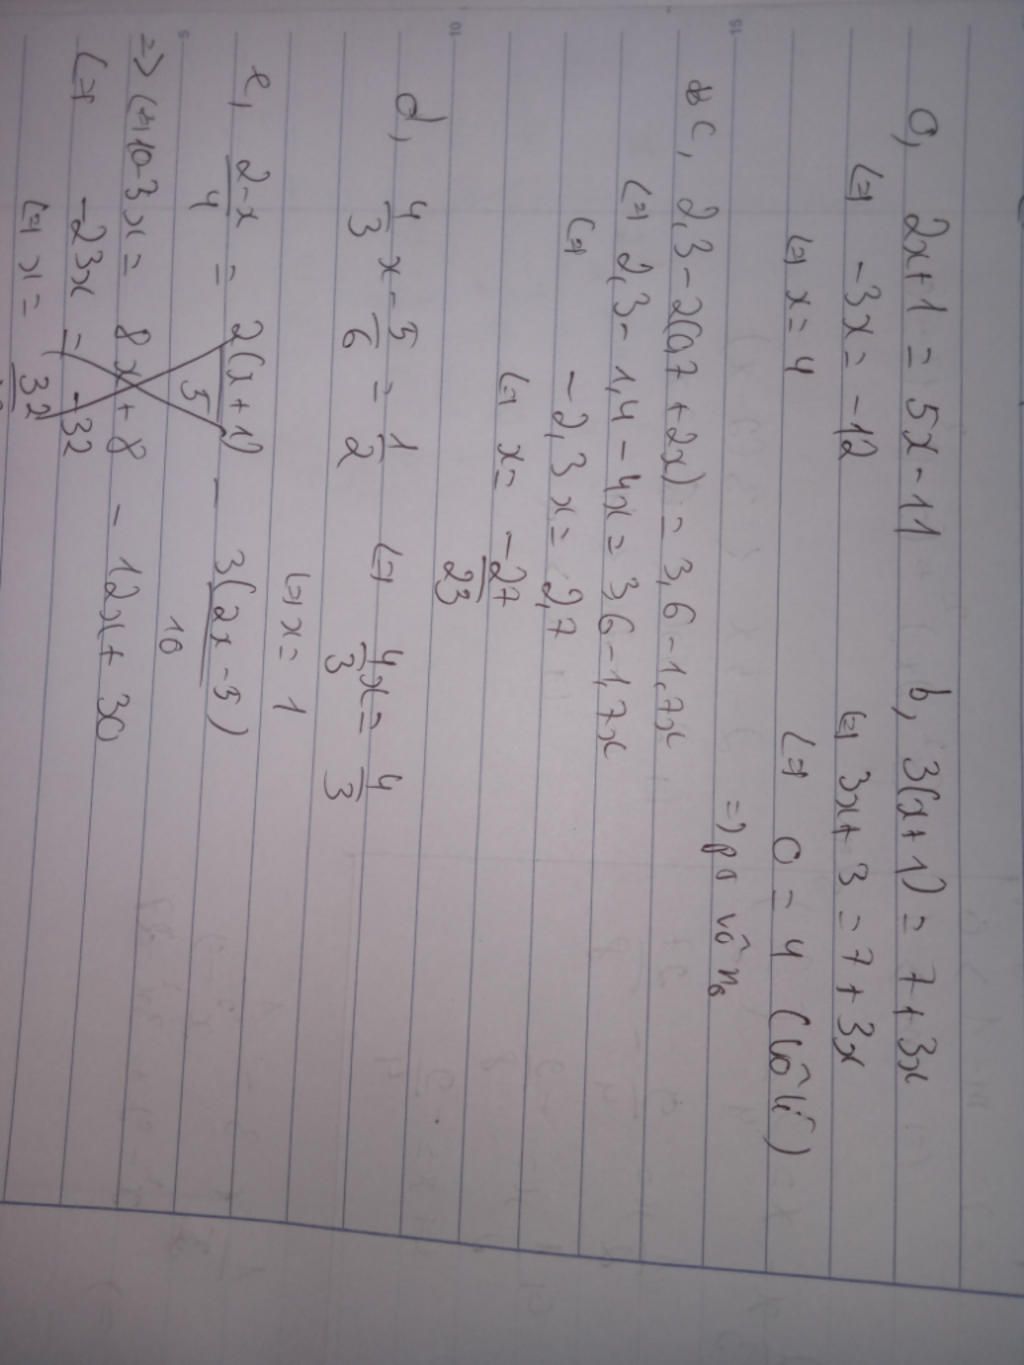 a, 2x+1 = 5x-11
(=) -3x = -12
(=) x = 4
b, 3(x+1) = 7+3x
(=) 3x+3 = 7+3x
(=) 0 = 4 (vô lí)
=) pt vô n0
c, 2,3-2(0,7+2x) = 3,6-1,7x
(=) 2,3-1,4-4x = 3,6-1,7x
(=) -2,3x = 2,7
(=) x = -27/23
d, 4/3 x - 5/6 = 1/2 (=) 4x/3 = 4/3
(=) x = 1
e, 2-x/4 = 2(x+1)/5 - 3(2x-5)/10
=) (=) 10-3x = 8x+8 - 12x+30
(=) -23x = -32
(=) x = 32